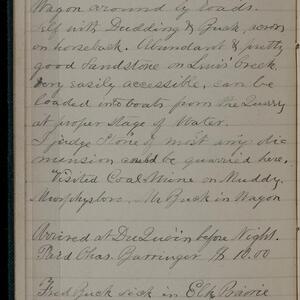 Wagon around by roads.
Self with Dudding & Buck, across
on horseback. Abundant & pretty
good Sandstone on Lewis' Creek.
Very easily accessible, can be
loaded into boats from the
at proper stage of Water.
I judge Stone of most any di-
mension could be quarried here.
Visited Coal Mine on Muddy
Murphysboro, Mr Buck in Wagon
Arrived at DuQuoin before Night.
Paid Chas. Barringer $ 10.00
Fred Buck sick in Elk Prairie